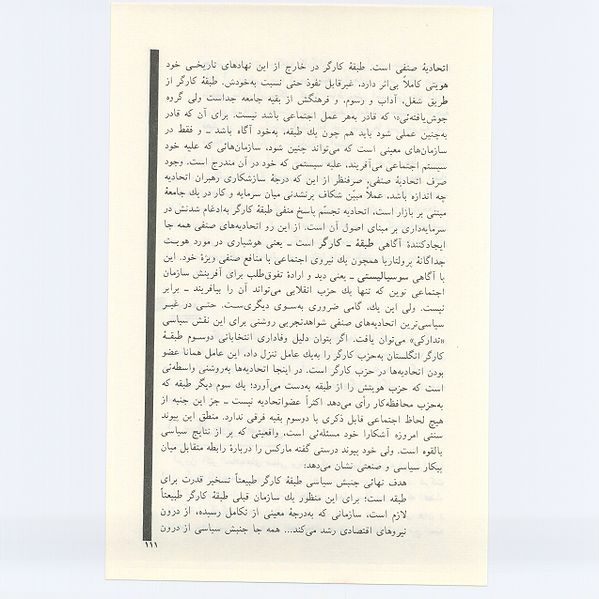 اتحادیهٔ صنفی است. طبقهٔ کارگر در خارج از این نهادهای تاریخـی خود
هویتی کاملاً بی‌اثر دارد، غیرقابل نفوذ حتی نسبت به‌خودش. طبقهٔ کارگر از
طریق شغل، آداب و رسوم، و فرهنگش از بقیه جامعه جداست ولی گروه
جوش‌یافته‌ئی» که قادر به‌هر عمل اجتماعی باشد نیست. برای آن که قادر
به‌چنین عملی شود باید هم چون یك طبقه، به‌خود آگاه باشد ــ و فقط در
سازمان‌های معینی است که می‌تواند چنین شود، سازمان‌هائی که علیه خود
سیستم اجتماعی می‌آفریند، علیه سیستمی که خود در آن مندرج است. وجود
صرف اتحادیهٔ صنفی، صرفنظر از این که درجهٔ سازشکاری رهبران اتحادیه
چه اندازه باشد، عملاً مبیّن شکاف پرنشدنی میان سرمایه و کار در یك جامعهٔ
مبتنی بر بازار است، اتحادیه تجسّم پاسخ منفی طبقهٔ کارگر به‌ادغام شدنش در
سرمایه‌داری بر مبنای اصول آن است. از این رو اتحادیه‌های صنفی همه جا
ایجادکنندهٔ آگاهی طبقهٔ ــ کارگر است ــ یعنی هوشیاری در مورد هویت
جداگانهٔ پرولتاریا همچون یك نیروی اجتماعی با منافع صنفی ویژهٔ خود. این
با آگاهی سوسیالیستی ــ یعنی دید و ارادهٔ تفوق‌طلب برای آفرینش سازمان
اجتماعی نوین که تنها یك حزب انقلابی می‌تواند آن را بیافریند ــ برابر
نیست. ولی این یك، گامی ضروری به‌سوی دیگری‌ست. حتـی در غیـر
سیاسی‌ترین اتحادیه‌های صنفی شواهدتجربی روشنی برای این نقش سیاسی
«تدارکی» می‌توان یافت. اگر بتوان دلیل وفاداری انتخاباتی دوسـوم طبقـهٔ
کارگر انگلستان به‌حزب کارگر را به‌یك عامل تنزل داد، این عامل همانا عضو
بودن اتحادیه‌ها در حزب کارگر است. در اینجا اتحادیه‌ها به‌روشنی واسطه‌ئی
است که حزب هویتش را از طبقه به‌دست می‌آورد؛ یك سوم دیگر طبقه که
به‌حزب محافظه‌کار رأی می‌دهد اکثراً عضواتحادیه نیست ــ جز این جنبه از
هیچ لحاظ اجتماعی قابل ذکری با دوسوم بقیه فرقی ندارد. منطق این پیوند
سنتی امروزه آشکارا خود مسئله‌ئی است، واقعیتی که پر از نتایج سیاسی
بالقوه است. ولی خود پیوند درستی گفته مارکس را دربارهٔ رابطه متقابل میان
پیکار سیاسی و صنعتی نشان می‌دهد:
هدف نهائی جنبش سیاسی طبقهٔ کارگر طبیعتاً تسخیر قدرت برای
طبقه است؛ برای این منظور یك سازمان قبلی طبقهٔ کارگر طبیعتاً
لازم است، سازمانی که به‌درجهٔ معینی از تکامل رسیده، از درون
نیروهای اقتصادی رشد می‌کند... همه جا جنبش سیاسی از درون
۱۱۱